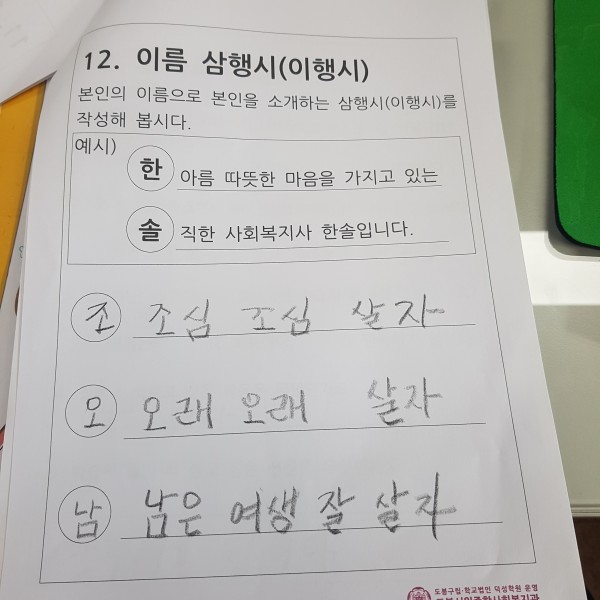 12. 이름 삼행시(이행시)
본인의 이름으로 본인을 소개하는 삼행시(이행시)를
작성해 봅시다.
예시)
한 아름 따뜻한 마음을 가지고 있는
솔 직한 사회복지사 한솔입니다.
조 조심 조심 살자
오 오래 오래 살자
남 남은 여생 잘 살자
도봉구립·학교법인 덕성학원 운영